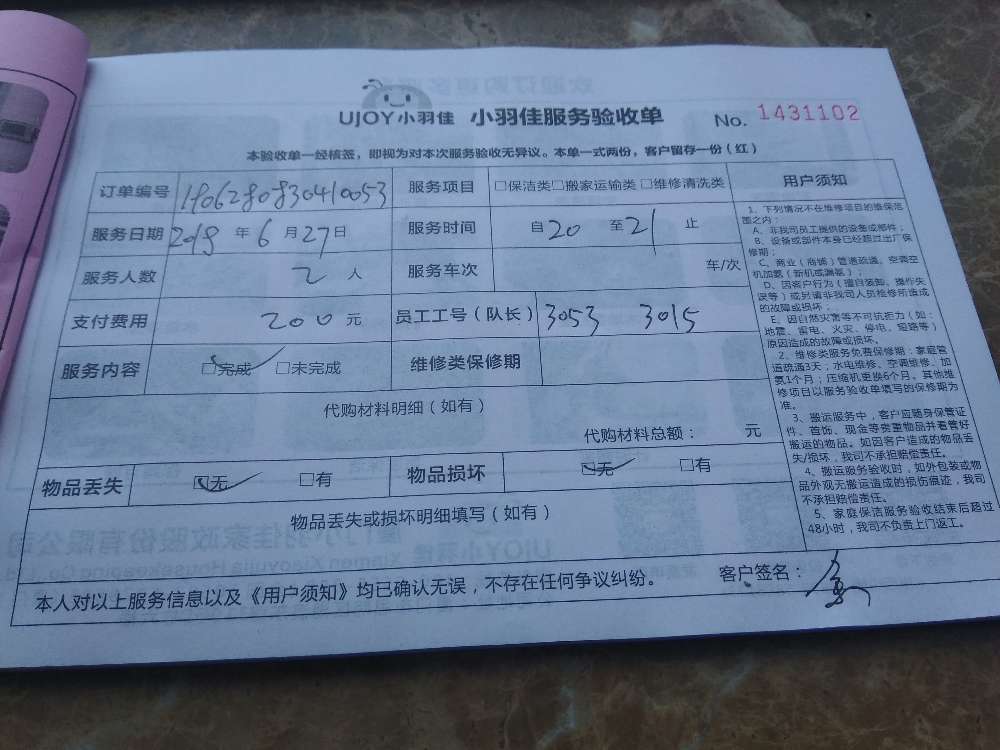 UJOY小羽佳 小羽佳服务验收单 No. 1431102
本验收单一经核签，即视为对本次服务验收无异议。本单一式两份，客户留存一份（红）
订单编号 1906280830410053 服务项目 □保洁类□搬家运输类□维修清洗类
服务日期 2019 年 6 月 27 日 服务时间 自 20 至 21 止
服务人数 2 人 服务车次 车/次
支付费用 200 元 员工工号（队长） 3053 3015
服务内容 □完成 □未完成 维修类保修期
代购材料明细（如有）
代购材料总额： 元
物品丢失 □无 □有 物品损坏 □无 □有
物品丢失或损坏明细填写（如有）
用户须知
1、下列情况不在维修项目的维保范
围之内：
A、非我司员工提供的设备或部件；
B、设备或部件本身已经超过出厂保
修期；
C、商业（商铺）管道疏通、空调空
机加氨（新机或漏氨）；
D、因客户行为（擅自装卸、操作失
误等）或另请非我司人员检修所造成
的故障或损坏；
E、因自然灾害等不可抗拒力（如：
地震、雷电、火灾、停电、短路等）
原因造成的故障或损坏。
2、维修类服务免费保修期：家庭管
道疏通3天；水电维修、空调维修、加
氨1个月；压缩机更换6个月。其他维
修项目以服务验收单填写的保修期为
准。
3、搬运服务中，客户应随身保管证
件、首饰、现金等贵重物品并看管好
搬运的物品。如因客户造成的物品丢
失/损坏，我司不承担赔偿责任。
4、搬运服务验收时，如外包装或物
品外观无搬运造成的损伤痕迹，我司
不承担赔偿责任。
5、家庭保洁服务验收结束后超过
48小时，我司不负责上门返工。
本人对以上服务信息以及《用户须知》均已确认无误，不存在任何争议纠纷。 客户签名：